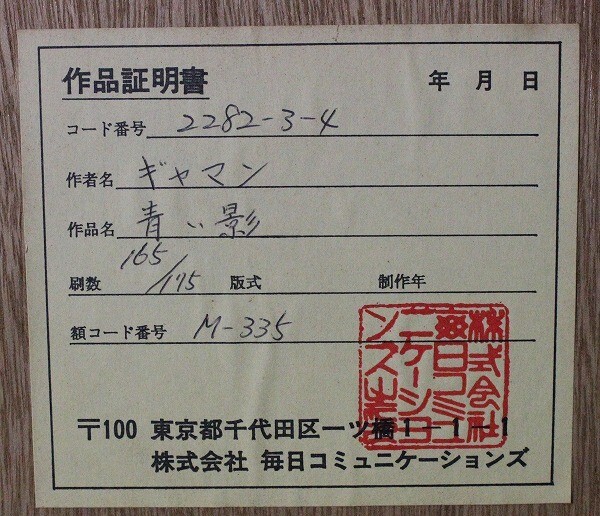 作品証明書 年 月 日
コード番号 2282-3-4
作者名 ギャマン
作品名 青い影
刷数 165/175 版式 制作年
額コード番号 M-335
株式会社
毎日コミュ
ニケーショ
ンズ之印
〒100 東京都千代田区一ツ橋1-1-1
株式会社 毎日コミュニケーションズ